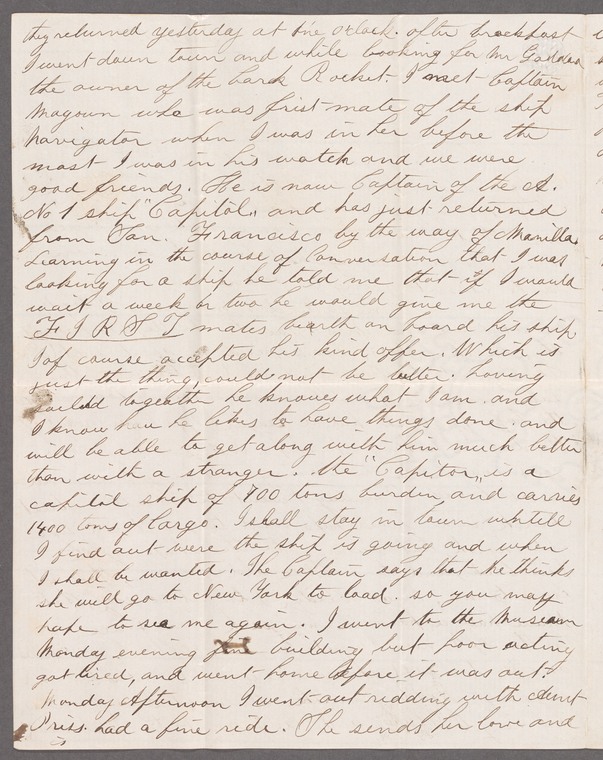 they returned yesterday at one o'clock. after breakfast
I went down town and while looking for Mr
the owner of the bark Rocket. I met Captain
Magoun who was frist mate of the ship
Navigator when I was in her before the
mast I was in his watch and we were
good friends. He is now Captain of the A.
No 1 ship "Capitol" and has just returned
from San. Francisco by the way of Manilla
Learning in the course of Conversation that I was
looking for a ship he told me that if I would
wait a week or two he would give me the
FIRST mates bearth on board his ship
I of course accepted his kind offer. Which is
just the thing, could not be better. having
sailed togeathe he knows what I am. and
I know how he likes to have things done. and
will be able to get along with him much better
than with a stranger. the "Capitol" is a
capital ship of 700 tons burden and carries
1400 tons of Cargo. I shall stay in town untill
I find out were the ship is going and when
I shall be wanted. The Captain says that he thinks
she will go to New York to load. so you may
hope to see me again. I went to the Museum
Monday evening fine building but poor acting
got tired, and went home before it was out.
Monday Afternoon I went out ridding with Aunt
Priss. had a fine ride. She sends her love and